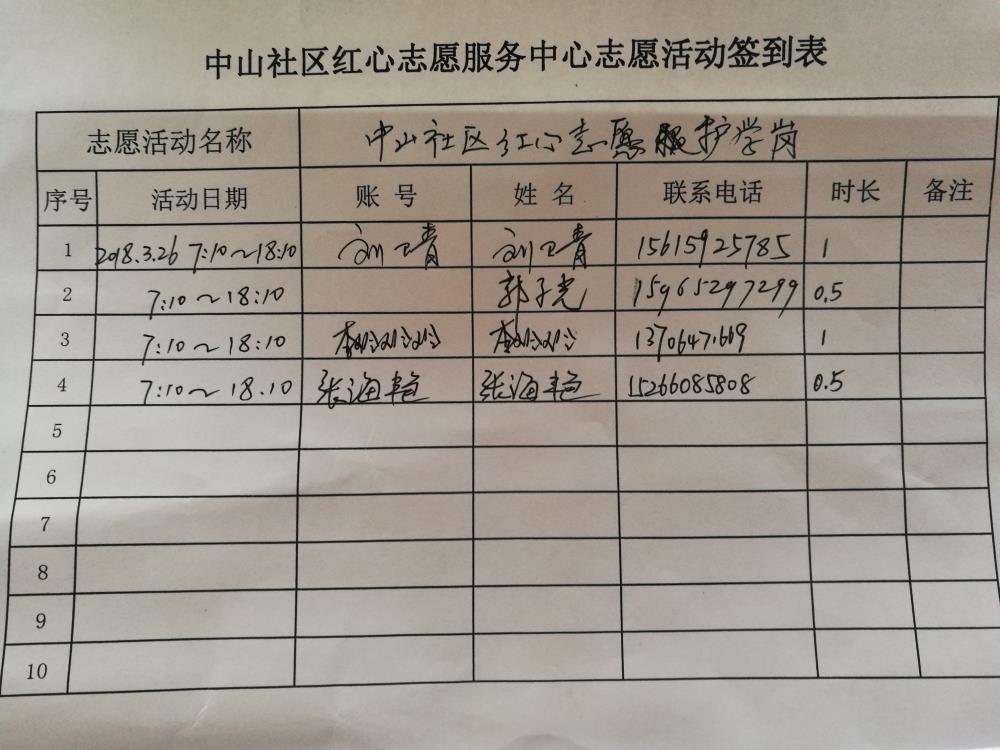 中山社区红心志愿服务中心志愿活动签到表
志愿活动名称 中山社区红心志愿 护学岗
序号 活动日期 账号 姓名 联系电话 时长 备注
1 2018.3.26 7:10~18:10 刘卫青 刘卫青 15615925785 1
2 7:10~18:10 郭子光 15965297299 0.5
3 7:10~18:10 李玲玲 1
4 7:10~18.10 张海艳 张海艳 15266085808 0.5
5
6
7
8
9
10